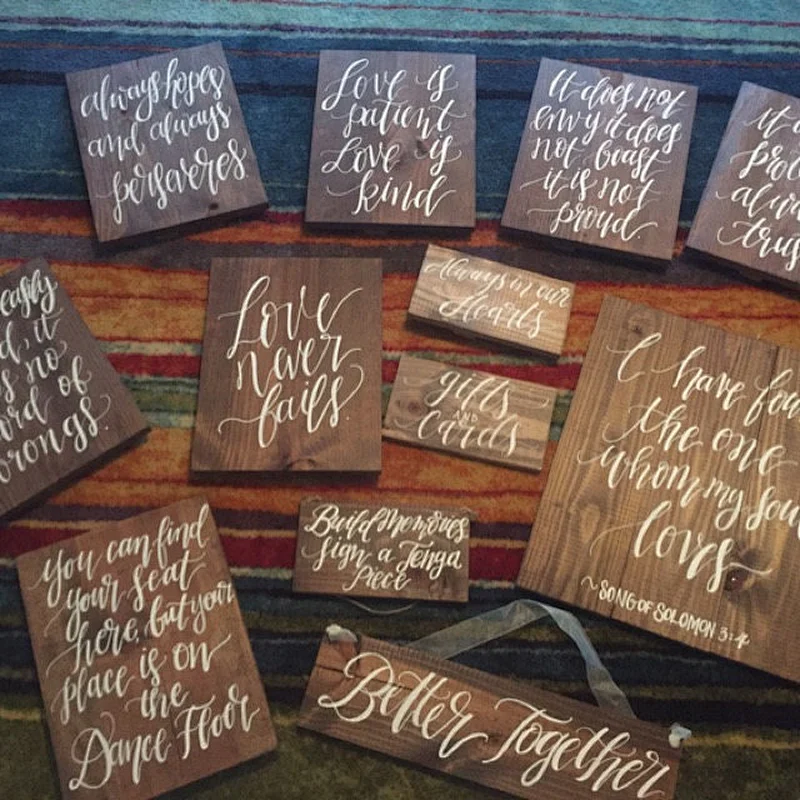 always hopes
and always
perseveres
Love is
patient
Love is
kind
It does not
envy it does
not boast
it is not
proud.
it
alw
trus
easily
d, it
s no
ord of
rongs.
Love
never
fails.
Always in our
Hearts
gifts
AND
Cards
I have fou
the one
whom my sou
loves
~SONG OF SOLOMON 3:4
Build Memories
sign a Jenga
Piece
You can find
your seat
here, but your
place is on
the
Dance Floor
Better Together